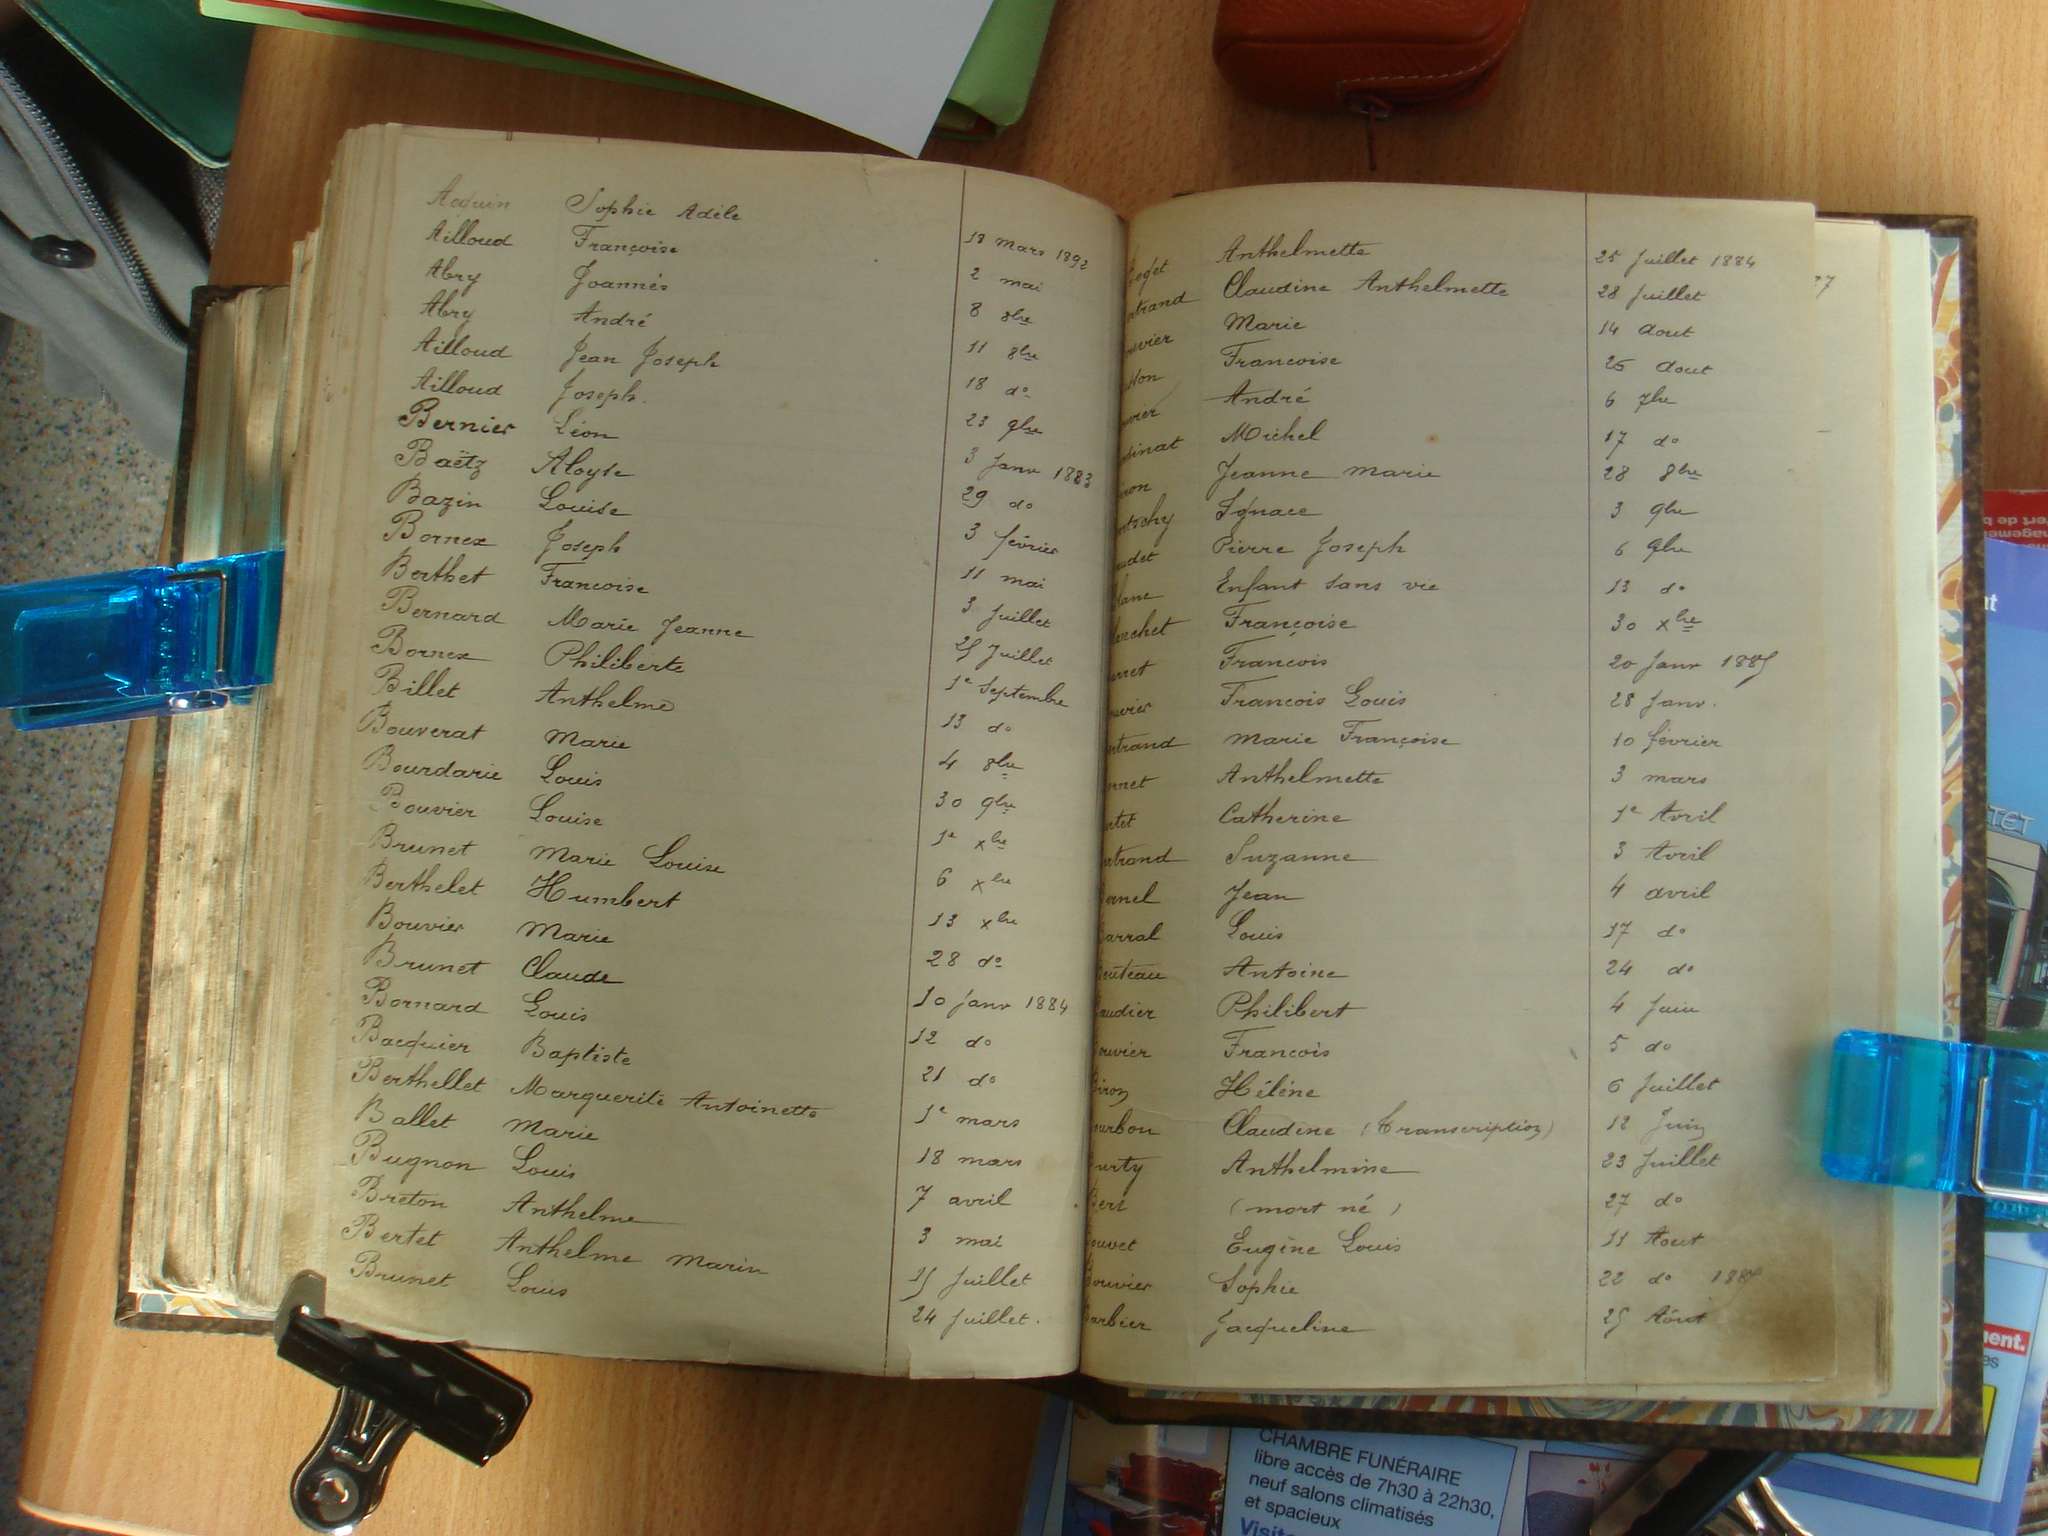 Acquin Sophie Adèle 18 mars 1892
Ailloud Françoise 2 mai
Abry Joannès 8 8bre
Abry André 11 8bre
Ailloud Jean Joseph 18 do
Ailloud Joseph. 23 9bre
Bernier Léon 3 Janv 1883
Baëtz Aloyse 29 do
Bazin Louise 3 février
Bornex Joseph 11 mai
Berthet Francoise 3 Juillet
Bernard Marie Jeanne 25 Juillet
Bornex Philiberte 1e Septembre
Billet Anthelme 13 do
Bouverat Marie 4 8bre
Bourdarie Louis 30 9bre
Bouvier Louise 1e xbre
Brunet Marie Louise 6 xbre
Berthelet Humbert 13 xbre
Bouvier Marie 28 do
Brunet Claude 10 janv 1884
Bornard Louis 12 do
Bacquier Baptiste 21 do
Berthellet Marguerite Antoinette 1e mars
Ballet Marie 18 mars
Bugnon Louis 7 avril
Breton Anthelme 3 mai
Bertet Anthelme Marin 15 Juillet
Brunet Louis 24 Juillet.
Anthelmette 25 Juillet 1884
rtrand Claudine Anthelmette 28 Juillet
uvier Marie 14 aout
Francoise 26 aout
uvier André 6 7bre
inat Michel 17 do
iron Jeanne Marie 28 8bre
tschy Ignace 3 9bre
udet Pierre Joseph 6 9bre
lanc Enfant sans vie 13 do
chet Françoise 30 xbre
rnet Francois 20 Janv 1885
uvier Francois Louis 28 Janv.
rtrand Marie Françoise 10 février
rnet Anthelmette 3 mars
rtet Catherine 1e Avril
rtrand Suzanne 3 Avril
ernel Jean 4 avril
arral Louis 17 do
outeau Antoine 24 do
audier Philibert 4 Juin
ouvier Francois 5 do
Biron Hélène 6 Juillet
ourbon Claudine (Transcription) 12 Juin
urty Anthelmine 23 Juillet
Bert (mort né) 27 do
ouvet Eugène Louis 11 Aout
ouvier Sophie 22 do 1885
arbier Jacqueline 25 Aout
CHAMBRE FUNÉRAIRE
libre accès de 7h30 à 22h30,
neuf salons climatisés
et spacieux